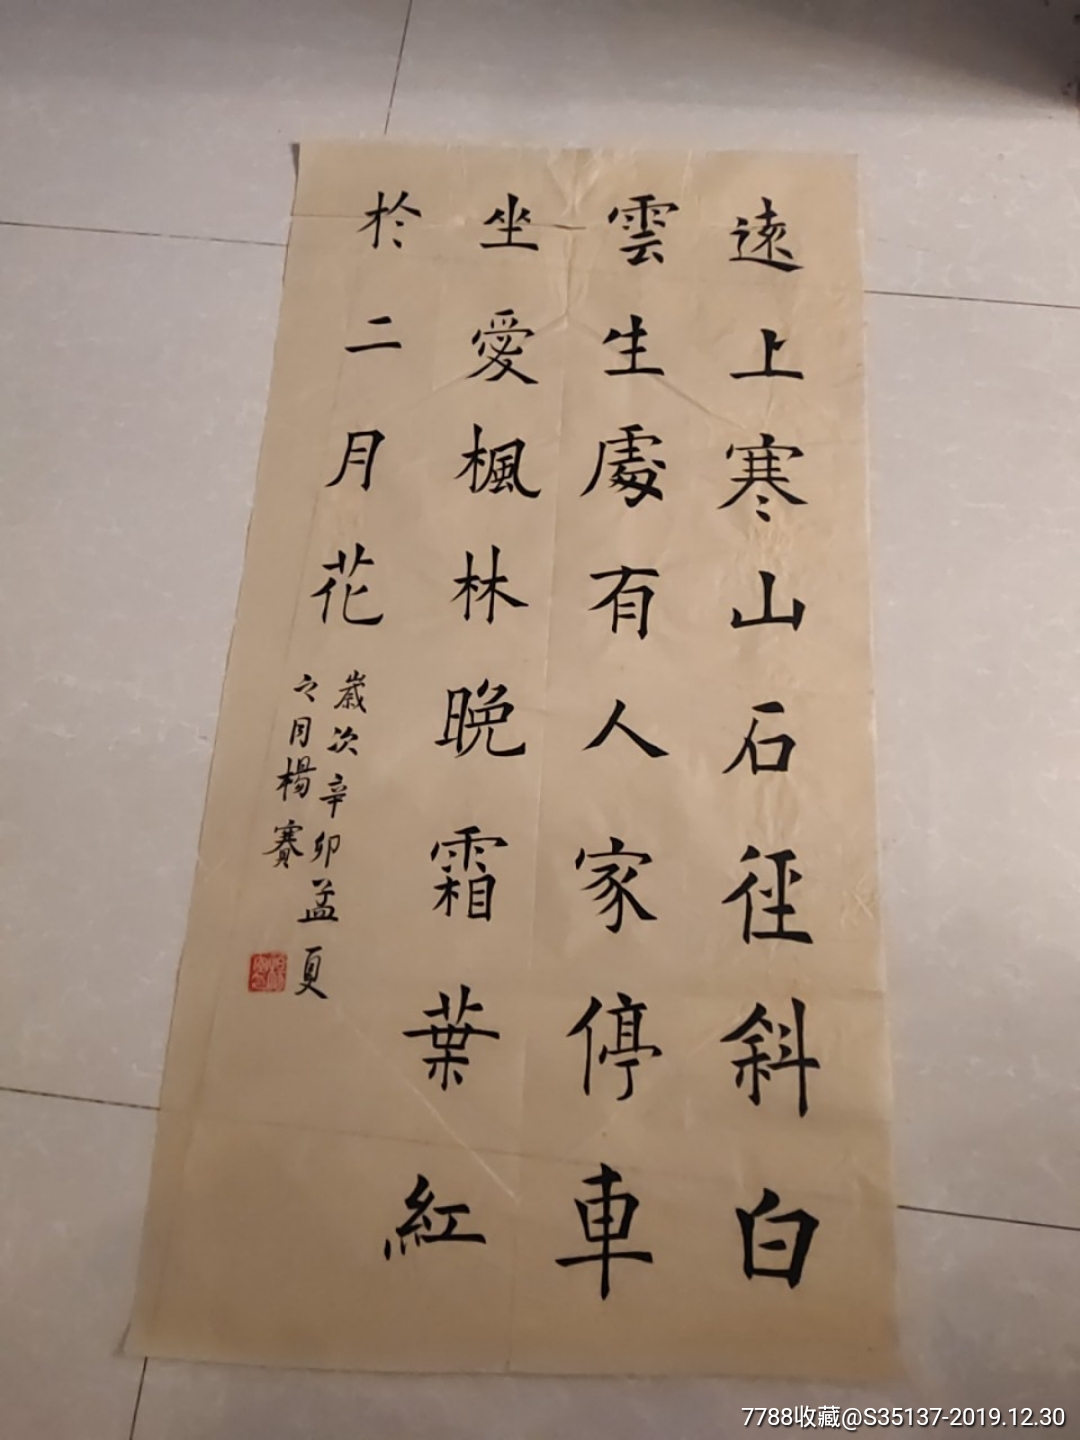 遠上寒山石徑斜白
雲生處有人家停車
坐愛楓林晚霜葉紅
於二月花
歲次辛卯孟夏
之月楊賽
7788收藏@S35137-2019.12.30